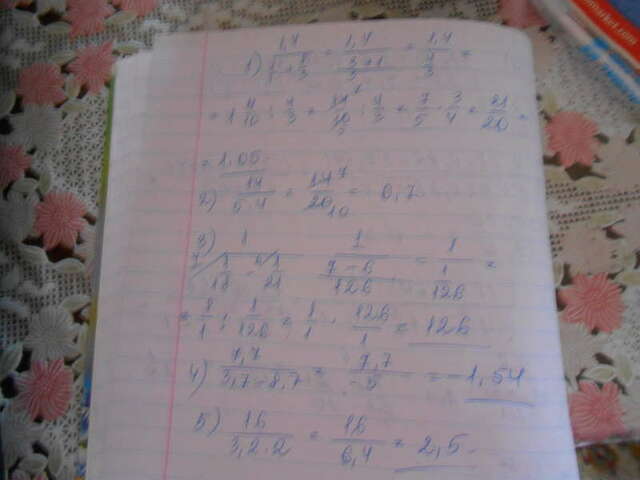 market.com
1) 1,4/(1+1/3) = 1,4/((3+1)/3) = 1,4/(4/3) =
= 1 4/10 : 4/3 = 14/10 : 4/3 = 7/5 · 3/4 = 21/20 =
= 1,05.
2) 14/(5·4) = 14/20 = 0,7
3) 1/(1/18 - 1/21) 1/((7-6)/126) = 1/(1/126) =
= 1/1 : 1/126 = 1/1 · 126/1 = 126
4) 7,7/(3,7-8,7) = 7,7/-5 = -1,54
5) 16/(3,2·2) = 16/6,4 = 2,5.